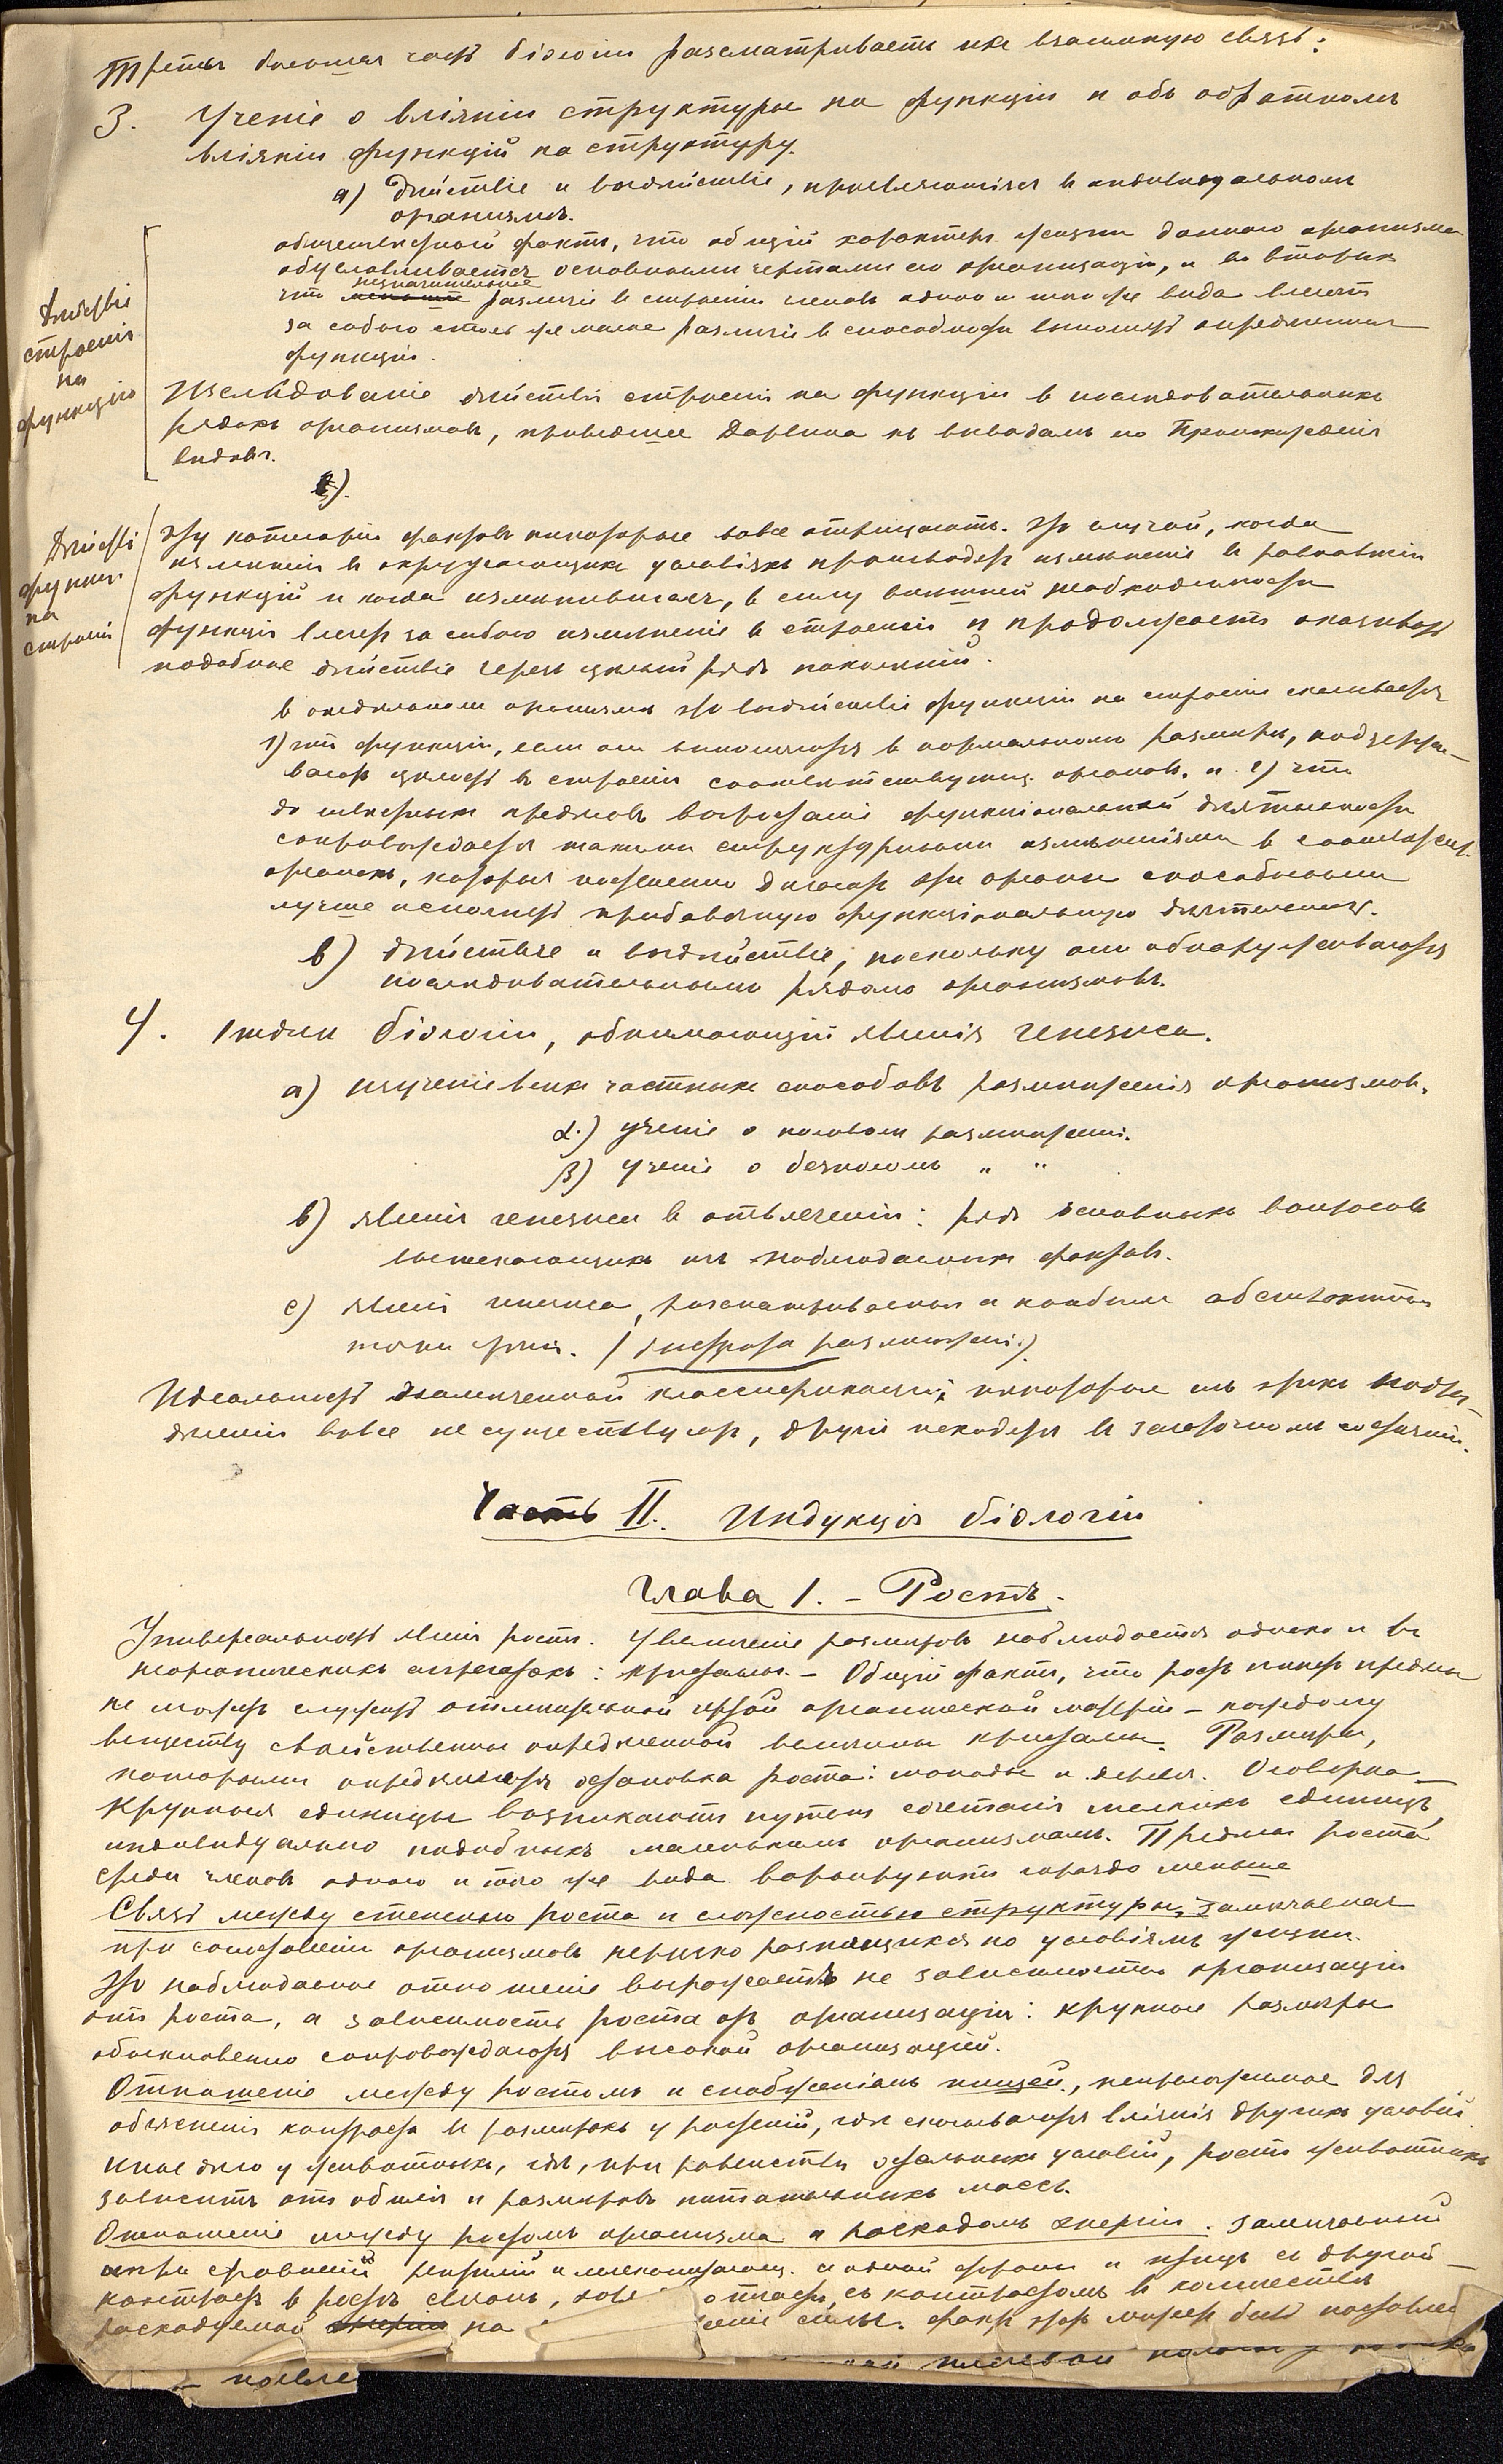 Третья большая часть біологіи разсматриваетъ ихъ взаимную связь:
3. Ученіе о вліяніи структуры на функціи и объ обратномъ
вліяніи функцій на структуру.
а) Дѣйствіе и воздѣйствіе, проявляющіяся въ индивидуальномъ
организмѣ.
общеизвѣстный фактъ, что общій характеръ жизни даннаго организма
обусловливается основными чертами его организаціи, и во вторыхъ
что незначительное различіе въ строеніи членовъ одного и того же вида влечетъ
за собою столь же малое различіе въ способности выполнять опредѣленныя
функціи.
Дѣйствіе
строенія
на
функцію
Изслѣдованіе дѣйствія строенія на функціи въ послѣдовательныхъ
рядахъ организмовъ, приведшее Дарвина къ выводамъ его Происхожденія
видовъ.
Дѣйствіе
функц.
на
строеніе
Эту категорію фактовъ некоторые вовсе отрицаютъ. Это случай, когда
измѣненія въ окружающихъ условіяхъ производятъ измѣненіе въ равновѣсіи
функцій и когда измѣнившаяся, въ силу внѣшней необходимости
функція влечетъ за собою измѣненіе въ строеніи и продолжаетъ оказывать
подобное дѣйствіе черезъ цѣлый рядъ поколѣній.
в отдѣльномъ организмѣ это воздѣйствіе функціи на строеніе сказывается
1) что функціи, если они выполняются в нормальномъ размѣрѣ, поддержи-
ваютъ цѣлость въ строеніи соотвѣтствующ. органовъ. и 2) что
до извѣстныхъ предѣловъ возрастаніе функціональной дѣятельности
сопровождается такими структурными измѣненіями в соотвѣтств.
органахъ, которыя постепенно дѣлаютъ эти органы способными
лучше исполнять прибавочную функціональную дѣятельность.
в) дѣйствіе и воздѣйствіе, поскольку они обнаруживаются
послѣдовательными рядами организмовъ.
4. Отдѣлъ біологіи, обнимающій явленія генезиса.
а) изученіе всѣхъ частныхъ способовъ размноженія организмовъ.
α.) ученіе о половомъ размноженіи.
β) ученіе о безполомъ " "
в) явленія генезиса въ отвлеченіи: рядъ основныхъ вопросовъ
вытекающихъ изъ наблюдаемыхъ фактовъ.
с) явленія генезиса, разсматриваемыя с наиболѣе абстрактной
точки зрѣнія. (Теорія размноженія)
Идеальность намѣченной классификаціи; некоторые изъ этихъ подраз-
дѣленій вовсе не существуютъ, другія находятся въ зачаточномъ состояніи.
Часть II. Индукція біологіи
Глава 1. – Ростъ.
Универсальность явленія роста. Увеличеніе размѣровъ наблюдается однако и въ
неорганическихъ агрегатахъ: кристаллы. – Общій фактъ, что ростъ имѣетъ предѣлы
не можетъ служить отличительной чертой органической матеріи – каждому
веществу свойственны опредѣленной величины кристаллы. Размѣры,
которыми опредѣляется остановка роста: монады и деревья. Оговорка –
Крупныя единицы возникаютъ путемъ сочетанія мелкихъ единицъ,
индивидуально подобныхъ маленькимъ организмамъ. Предѣлы роста
среди членовъ одного и того же вида варіируютъ гораздо меньше
Связь между степенью роста и сложностью структуры, замѣчаемая
при сопоставленіи организмовъ нерѣзко разнящихся по условіямъ жизни.
Это наблюдаемое отношеніе выражаетъ не зависимость организаціи
отъ роста, а зависимость роста отъ организаціи: крупные размѣры
обыкновенно сопровождаются высокой организаціей.
Отношеніе между ростомъ и снабженіемъ пищей, неприложимое для
объясненія контраста въ размѣрахъ у растеній, гдѣ сказываются вліянія другихъ условій.
Иное дѣло у животныхъ, гдѣ, при равенствѣ остальныхъ условій, ростъ животныхъ
зависитъ отъ обилія и размѣровъ питательныхъ массъ.
Отношеніе между ростомъ организма и расходомъ энергіи. Замѣчаемый
при сравненіи рептилій и млекопитающ. с одной стороны и птицъ съ другой –
контрастъ в ростѣ
съ контрастомъ въ количествѣ
расходуемой на
силы. Фактъ этотъ можетъ быть поставленъ